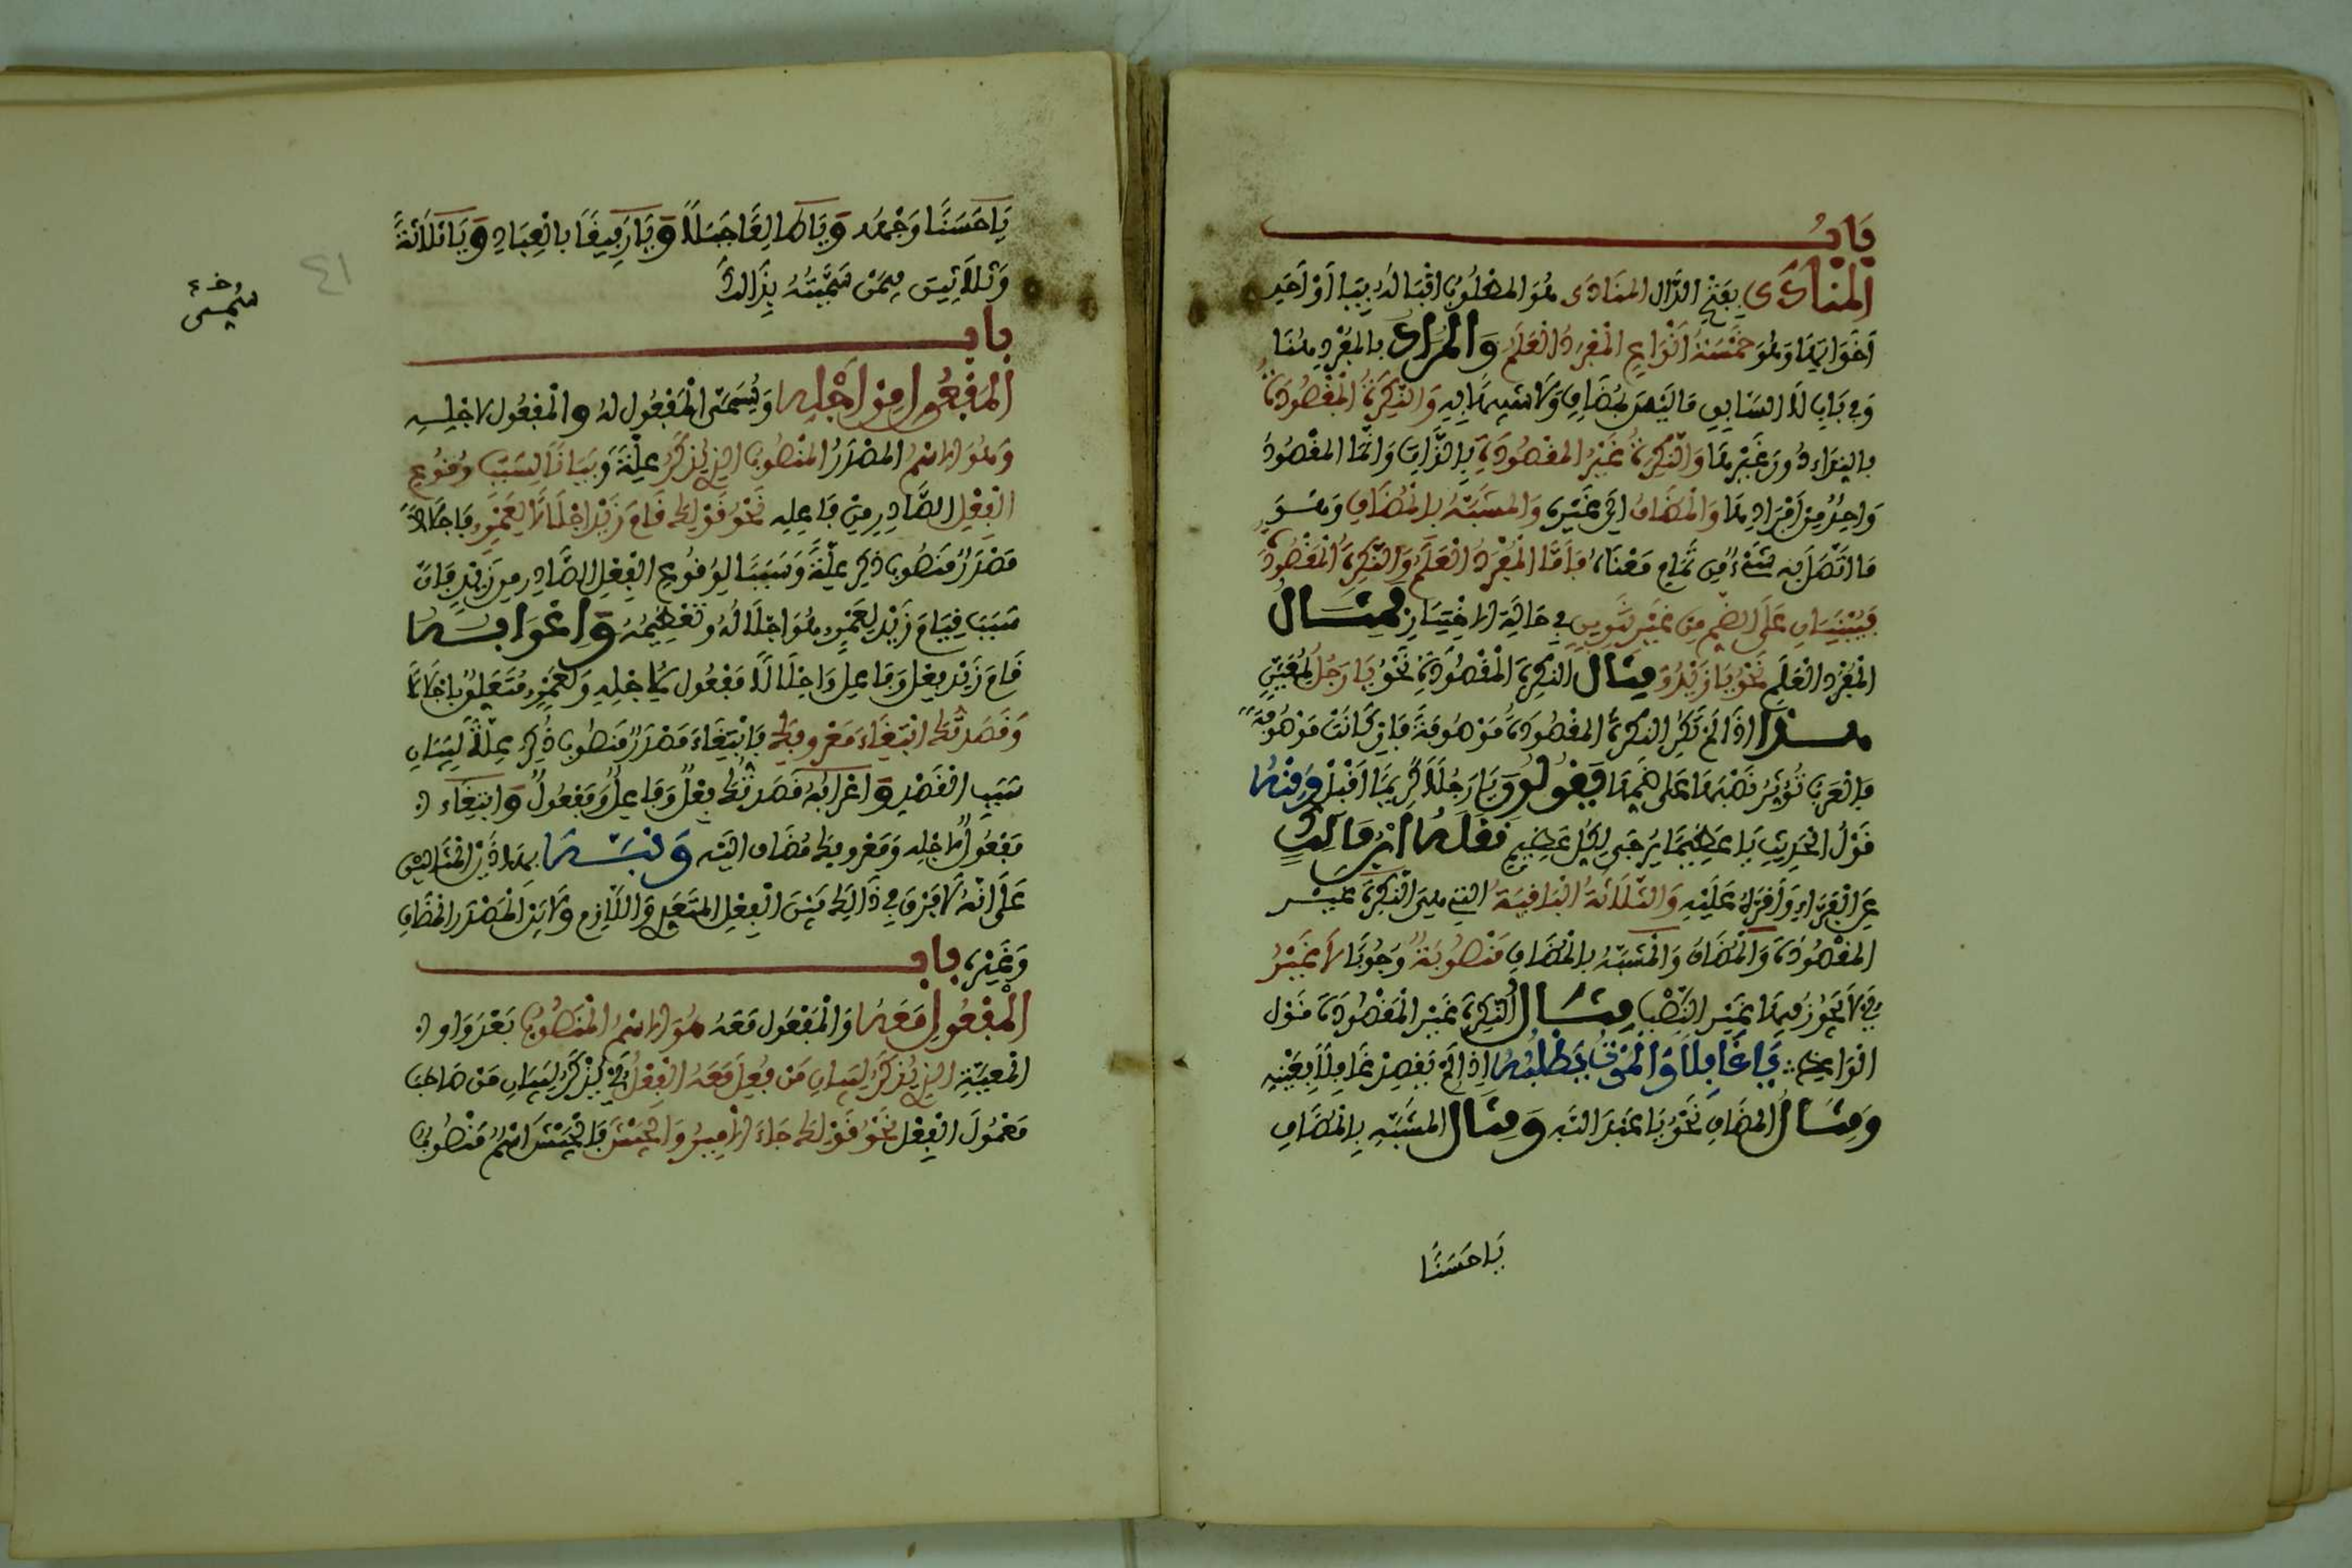 بَابُ
المنادَى بِفَتْحِ الدَّال المنَادَى هُوَ المطْلُوبُ اقْبَالهُ بِيَا أوْ احَدِ
أخَوَاتِهَا وَهُوَ خَمْسَةُ أنْوَاعٍ المُفْرَدُ الْعَلَمُ وَالمُرَادُ بالمُفْرَدِ هُنَا
وَفِي بَابِ لَا السَّابِقِ مَا لَيْسَ بمُضَافٍ وَلَا شَبِيهًا بِهِ وَالنَّكِرَةُ الْمَقْصُودَةُ
بالنِّدَاءِ دُونَ غَيْرِهَا وَالنَّكِرَةُ غَيْرُ المقْصُودَةِ بِالذَّاتِ وَانَّمَا المقْصُودُ
وَاحِدٌ مِنْ أفْرَادِهَا وَالْمُضَافُ الَى غَيْرِهِ وَالمُشَبَّهُ بِالْمُضَافِ وَهُوَ
مَا اتَّصَلَ بِهِ شَيْءٌ مِنْ تَمَامِ مَعْنَاهُ فَأمَّا الْمُفْرَدُ الْعَلَمُ وَالنَّكِرَةُ الْمَقْصُودَةُ
فَيُبْنَيَانِ عَلَى الضَّمِّ مِنْ غَيْرِ تَنْوِينٍ فِي حَالَةِ الاخْتِيَارِ فَمِثَالُ
الْمُفْرَدِ الْعَلَمِ نَحْوُ يَا زَيْدُ وَمِثَالُ النَّكِرَةِ الْمَقْصُودَةِ نَحْوُ يَا رَجُلُ لِمُعَيَّنٍ
هذا اذَا لَمْ تَكُنِ النَّكِرَةُ المقْصُودَةُ مَوْصُوفَةً فَإنْ كَانَتْ مَوْصُوفَةً
فالْعَرَبُ تُؤْثِرُ نَصْبَهَا عَلَى ضَمِّهَا فَيَقُولُونَ يَا رَجُلًا كَرِيمًا اقْبِلْ وَمِنْهُ
قَوْلُ الْحَدِيثِ يَا عَظِيمًا يُرْجَى لِكُلِّ عَظِيمٍ نَقَلَهُ ابْنُ مَالِكٍ
عَنِ الْفَرَّاءِ وَأقَرَّهُ عَلَيْهِ وَالثَّلَاثَةُ الْبَاقِيَةُ التي هِيَ النَّكِرَةُ غَيْرُ
المقْصُودَةِ وَالْمُضَافُ وَالْمُشَبَّهُ بالمُضَافِ مَنْصُوبَةٌ وُجُوبًا لَا غَيْرُ
أيْ لَا يَجُوزُ فِيهَا غَيْرُ النَّصْبِ مِثَالُ النَّكِرَةِ غَيْرِ الْمَقْصُودَةِ قَوْلُ
الْوَاعِظِ يَا غَافِلًا وَالْمَوْتُ يَطْلُبُهُ اذَا لَمْ يَقْصِدْ غَافِلًا بِعَيْنِهِ
وَمِثَالُ الْمُضَافِ نَحْوُ يَا عَبْدَ اللَّهِ وَمِثَالُ المشَبَّهِ بِالْمُضَافِ
يَا حَسَنًا
يَا حَسَنًا وَجْهُهُ وَيَا طَالِعًا جَبَلًا وَيَا رَفِيقًا بِالْعِبَادِ وَيَا ثَلَاثَةً
وَثَلَاثِينَ فِيمَنْ سَمَّيْتَهُ بِذَالِكَ
٤١
باب
الْمَفْعُول مِنْ أجْلِهِ وَيُسَمَّى الْمَفْعُول لَهُ وَالْمَفْعُول لاجْلِهِ
وَهُوَ الاسْمُ المصْدَرُ المنْصُوبُ الذِي يُذْكَرُ عِلَّةً وَبَيَانًا لِسَبَبِ وُقُوعِ
الْفِعْلِ الصَّادِرِ مِنْ فَاعِلِهِ نَحْوُ قَوْلِكَ قَامَ زَيْدٌ اجْلَالًا لِعَمْرٍو فَاجْلَالًا
مَصْدَرٌ مَنْصُوبٌ ذُكِرَ عِلَّةً وَسَبَبًا لِوُقُوعِ الْفِعْلِ الصَّادِرِ مِنْ زَيْدٍ فَإنَّ
سَبَبَ قِيَامِ زَيْدٍ لِعَمْرٍو هُوَ اجْلَالُهُ وَتَعْظِيمُهُ وَاعْرَابُهُ
قَامَ زَيْدٌ فِعْلٌ وَفَاعِلٌ وَاجْلَالًا مَفْعُول لأجْلِهِ وَلِعَمْرٍو مُتَعَلِّقٌ بِاجْلَالًا
وَقَصَدْتُكَ ابْتِغَاءَ مَعْرُوفِكَ فَابْتِغَاءَ مَصْدَرٌ مَنْصُوبٌ ذُكِرَ عِلَّةً لِبَيَانِ
سَبَبِ الْقَصْدِ وَاعْرَابُهُ قَصَدْتُكَ فِعْلٌ وَفَاعِلٌ وَمَفْعُولٌ وَابْتِغَاءَ
مَفْعُولٌ لاجْلِهِ وَمَعْرُوفِكَ مُضَافٌ الَيْهِ وَنَبَّهَ بهَاذَيْنِ الْمِثَالَيْنِ
عَلَى انَّهُ لَا فَرْقَ فِي ذَالِكَ بَيْنَ الْفِعْلِ المتَعَدِّي وَاللَّازِمِ وَلَا بَيْنَ الْمَصْدَرِ الْمُضَافِ
وَغَيْرِهِ باب
الْمَفْعُولِ مَعَهُ وَالْمَفْعُول مَعَهُ هُوَ الاسْمُ الْمَنْصُوبُ بَعْدَ وَاوِ
الْمَعِيَّةِ الذِي يُذْكَرُ لِبَيَانِ مَنْ فُعِلَ مَعَهُ الْفِعْلُ أيْ يُذْكَرُ لِبَيَانِ مَنْ صَاحَبَ
مَعْمُولَ الْفِعْلِ نَحْوُ قَوْلِكَ جَاءَ الامِيرُ وَالْجَيْشَ فَالْجَيْشَ اسْمٌ مَنْصُوبٌ